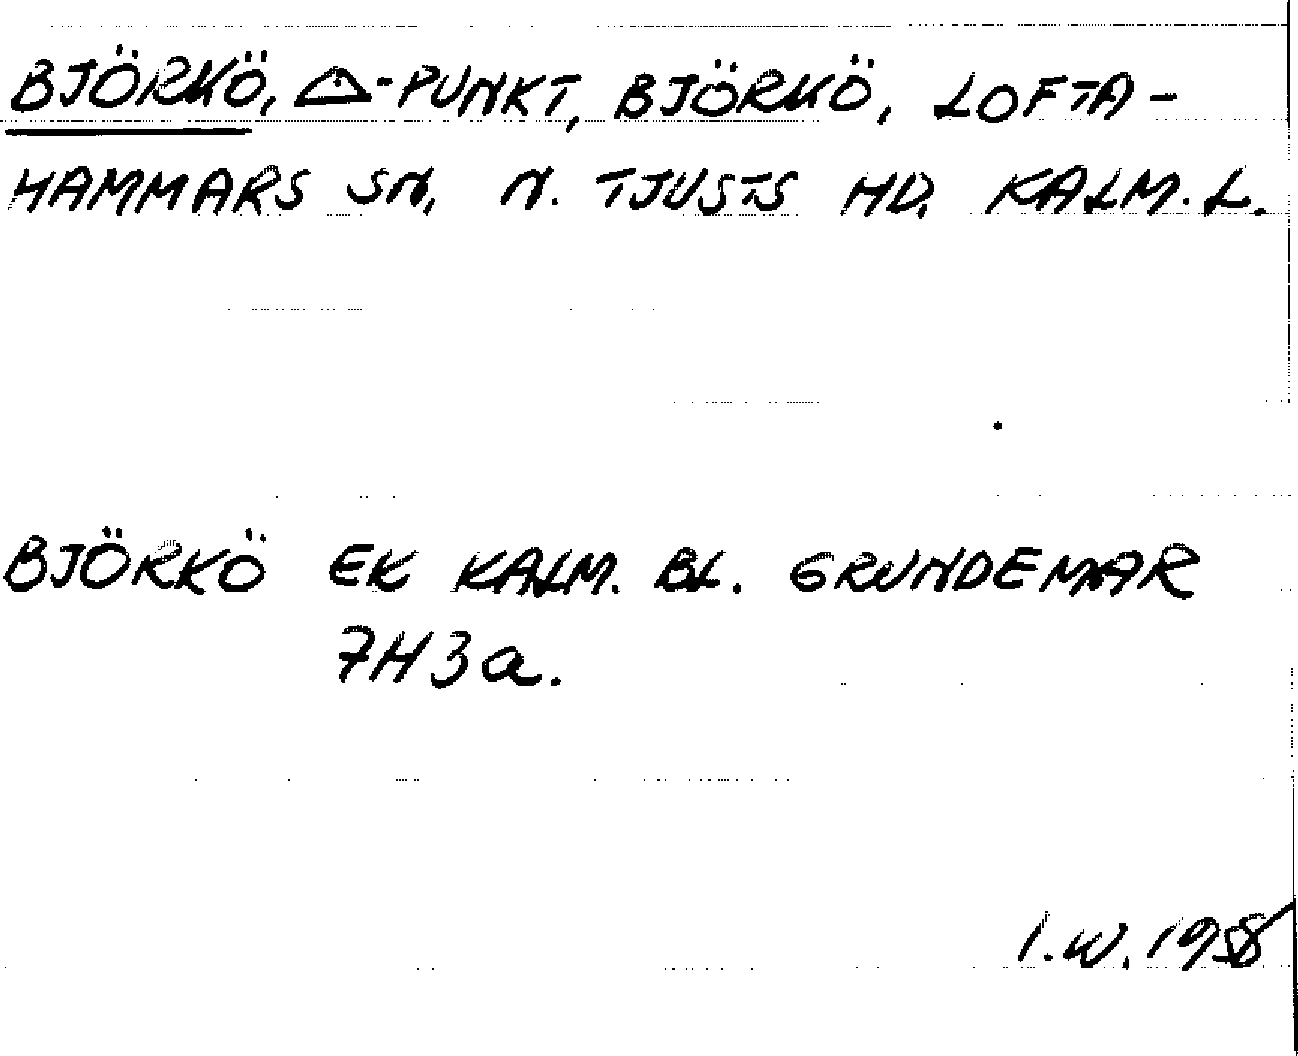 BJÖRKÖ, △-PUNKT, BJÖRKÖ, LOFTA-
HAMMARS SN, N. TJUSTS HD. KALM. L.
BJÖRKÖ EK KALM. BL. GRUNDEMAR
7H3a.
I.W. 1958